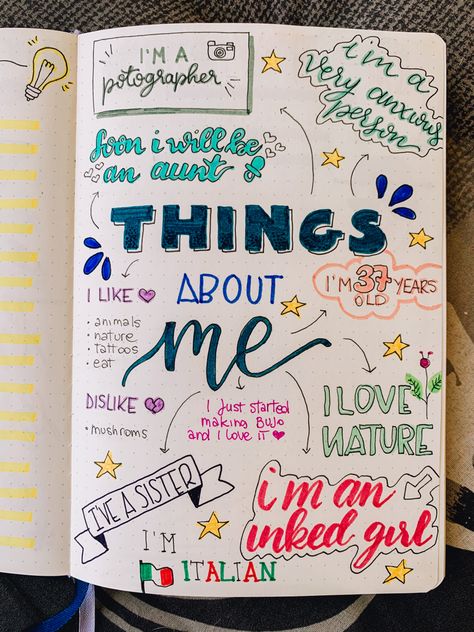 I'M A
potographer
i'm a
very anxious
person
soon i will be
an aunt
THINGS
ABOUT
me
I LIKE
• animals
• nature
• tattoos
• eat
I'M 37 YEARS
OLD
DISLIKE
• mushroms
I just started
making BUJO
and i love it
I LOVE
NATURE
I'VE A SISTER
i'm an
inked girl
I'M
ITALIAN